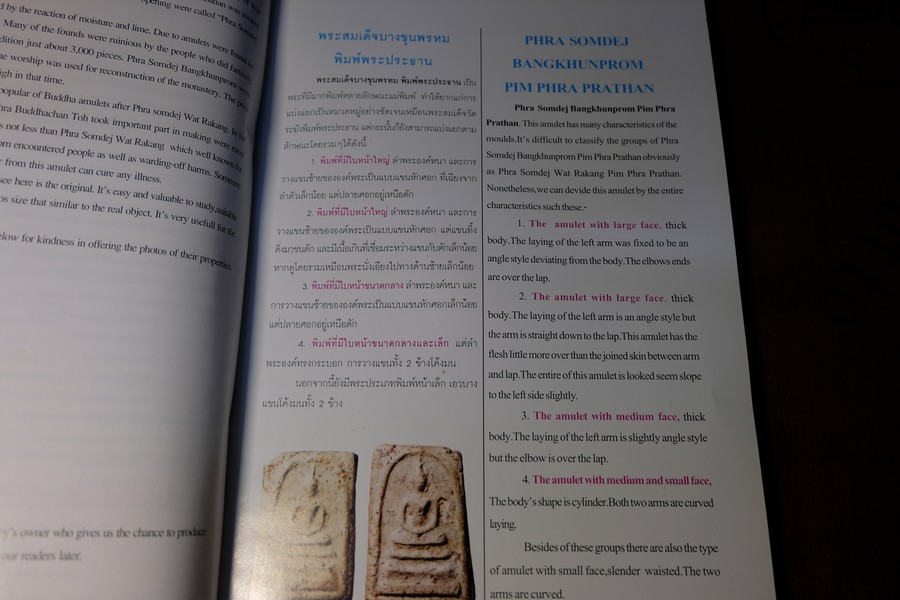 d by the reaction of moisture and lime. Due to amulets were found in
Many of the founds were ruinious by the people who did
dition just about 3,000 pieces. Phra Somdej Bangkhunprom
worship was used for reconstruction of the monastery. The
igh in that time.
popular of Buddha amulets after Phra somdej Wat Rakang. In
ra Buddhachan Toh took important part in making were
s not less than Phra Somdej Wat Rakang which well known for
om encountered people as well as warding-off harms. Someone
r from this amulet can cure any illness.
see here is the original. It's easy and valuable to study,suitable
os size that similar to the real object. It's very usefull for the
elow for kindness in offering the photos of their properties.
y's owner who gives us the chance to produce
our readers later.
พระสมเด็จบางขุนพรหม
พิมพ์พระประธาน
พระสมเด็จบางขุนพรหม พิมพ์พระประธาน เป็น
พระที่มีมากพิมพ์หลายลักษณะแม่พิมพ์ ทำให้ยากแก่การ
แบ่งแยกเป็นหมวดหมู่อย่างชัดเจนเหมือนพระสมเด็จวัด
ระฆังพิมพ์พระประธาน แต่กระนั้นก็ยังสามารถแบ่งแยกตาม
ลักษณะโดยรวมๆได้ดังนี้
1. พิมพ์ที่มีใบหน้าใหญ่ ลำพระองค์หนา และการ
วางแขนซ้ายขององค์พระเป็นแบบแขนหักศอก ที่เฉียงจาก
ลำตัวเล็กน้อย แต่ปลายศอกอยู่เหนือตัก
2. พิมพ์ที่มีใบหน้าใหญ่ ลำพระองค์หนา และการ
วางแขนซ้ายขององค์พระเป็นแบบแขนหักศอก แต่แขนทิ้ง
ดิ่งมาชนตัก และมีเนื้อเกินที่เชื่อมระหว่างแขนกับตักเล็กน้อย
หากดูโดยรวมเหมือนพระนั่งเอียงไปทางด้านซ้ายเล็กน้อย
3. พิมพ์ที่มีใบหน้าขนาดกลาง ลำพระองค์หนา และ
การวางแขนซ้ายขององค์พระเป็นแบบแขนหักศอกเล็กน้อย
แต่ปลายศอกอยู่เหนือตัก
4. พิมพ์ที่มีใบหน้าขนาดกลางและเล็ก แต่ลำ
พระองค์ทรงกระบอก การวางแขนทั้ง 2 ข้างโค้งมน
นอกจากนี้ยังมีพระประเภทพิมพ์หน้าเล็ก เอวบาง
แขนโค้งมนทั้ง 2 ข้าง
PHRA SOMDEJ
BANGKHUNPROM
PIM PHRA PRATHAN
Phra Somdej Bangkhunprom Pim Phra
Prathan. This amulet has many characteristics of the
moulds.It's difficult to classify the groups of Phra
Somdej Bangkhunprom Pim Phra Prathan obviously
as Phra Somdej Wat Rakang Pim Phra Prathan.
Nonetheless,we can devide this amulet by the entire
characteristics such these.-
1. The amulet with large face, thick
body.The laying of the left arm was fixed to be an
angle style deviating from the body.The elbows ends
are over the lap.
2. The amulet with large face, thick
body.The laying of the left arm is an angle style but
the arm is straight down to the lap.This amulet has the
flesh little more over than the joined skin between arm
and lap.The entire of this amulet is looked seem slope
to the left side slightly.
3. The amulet with medium face, thick
body.The laying of the left arm is slightly angle style
but the elbow is over the lap.
4. The amulet with medium and small face,
The body's shape is cylinder.Both two arms are curved
laying.
Besides of these groups there are also the type
of amulet with small face,slender waisted.The two
arms are curved.